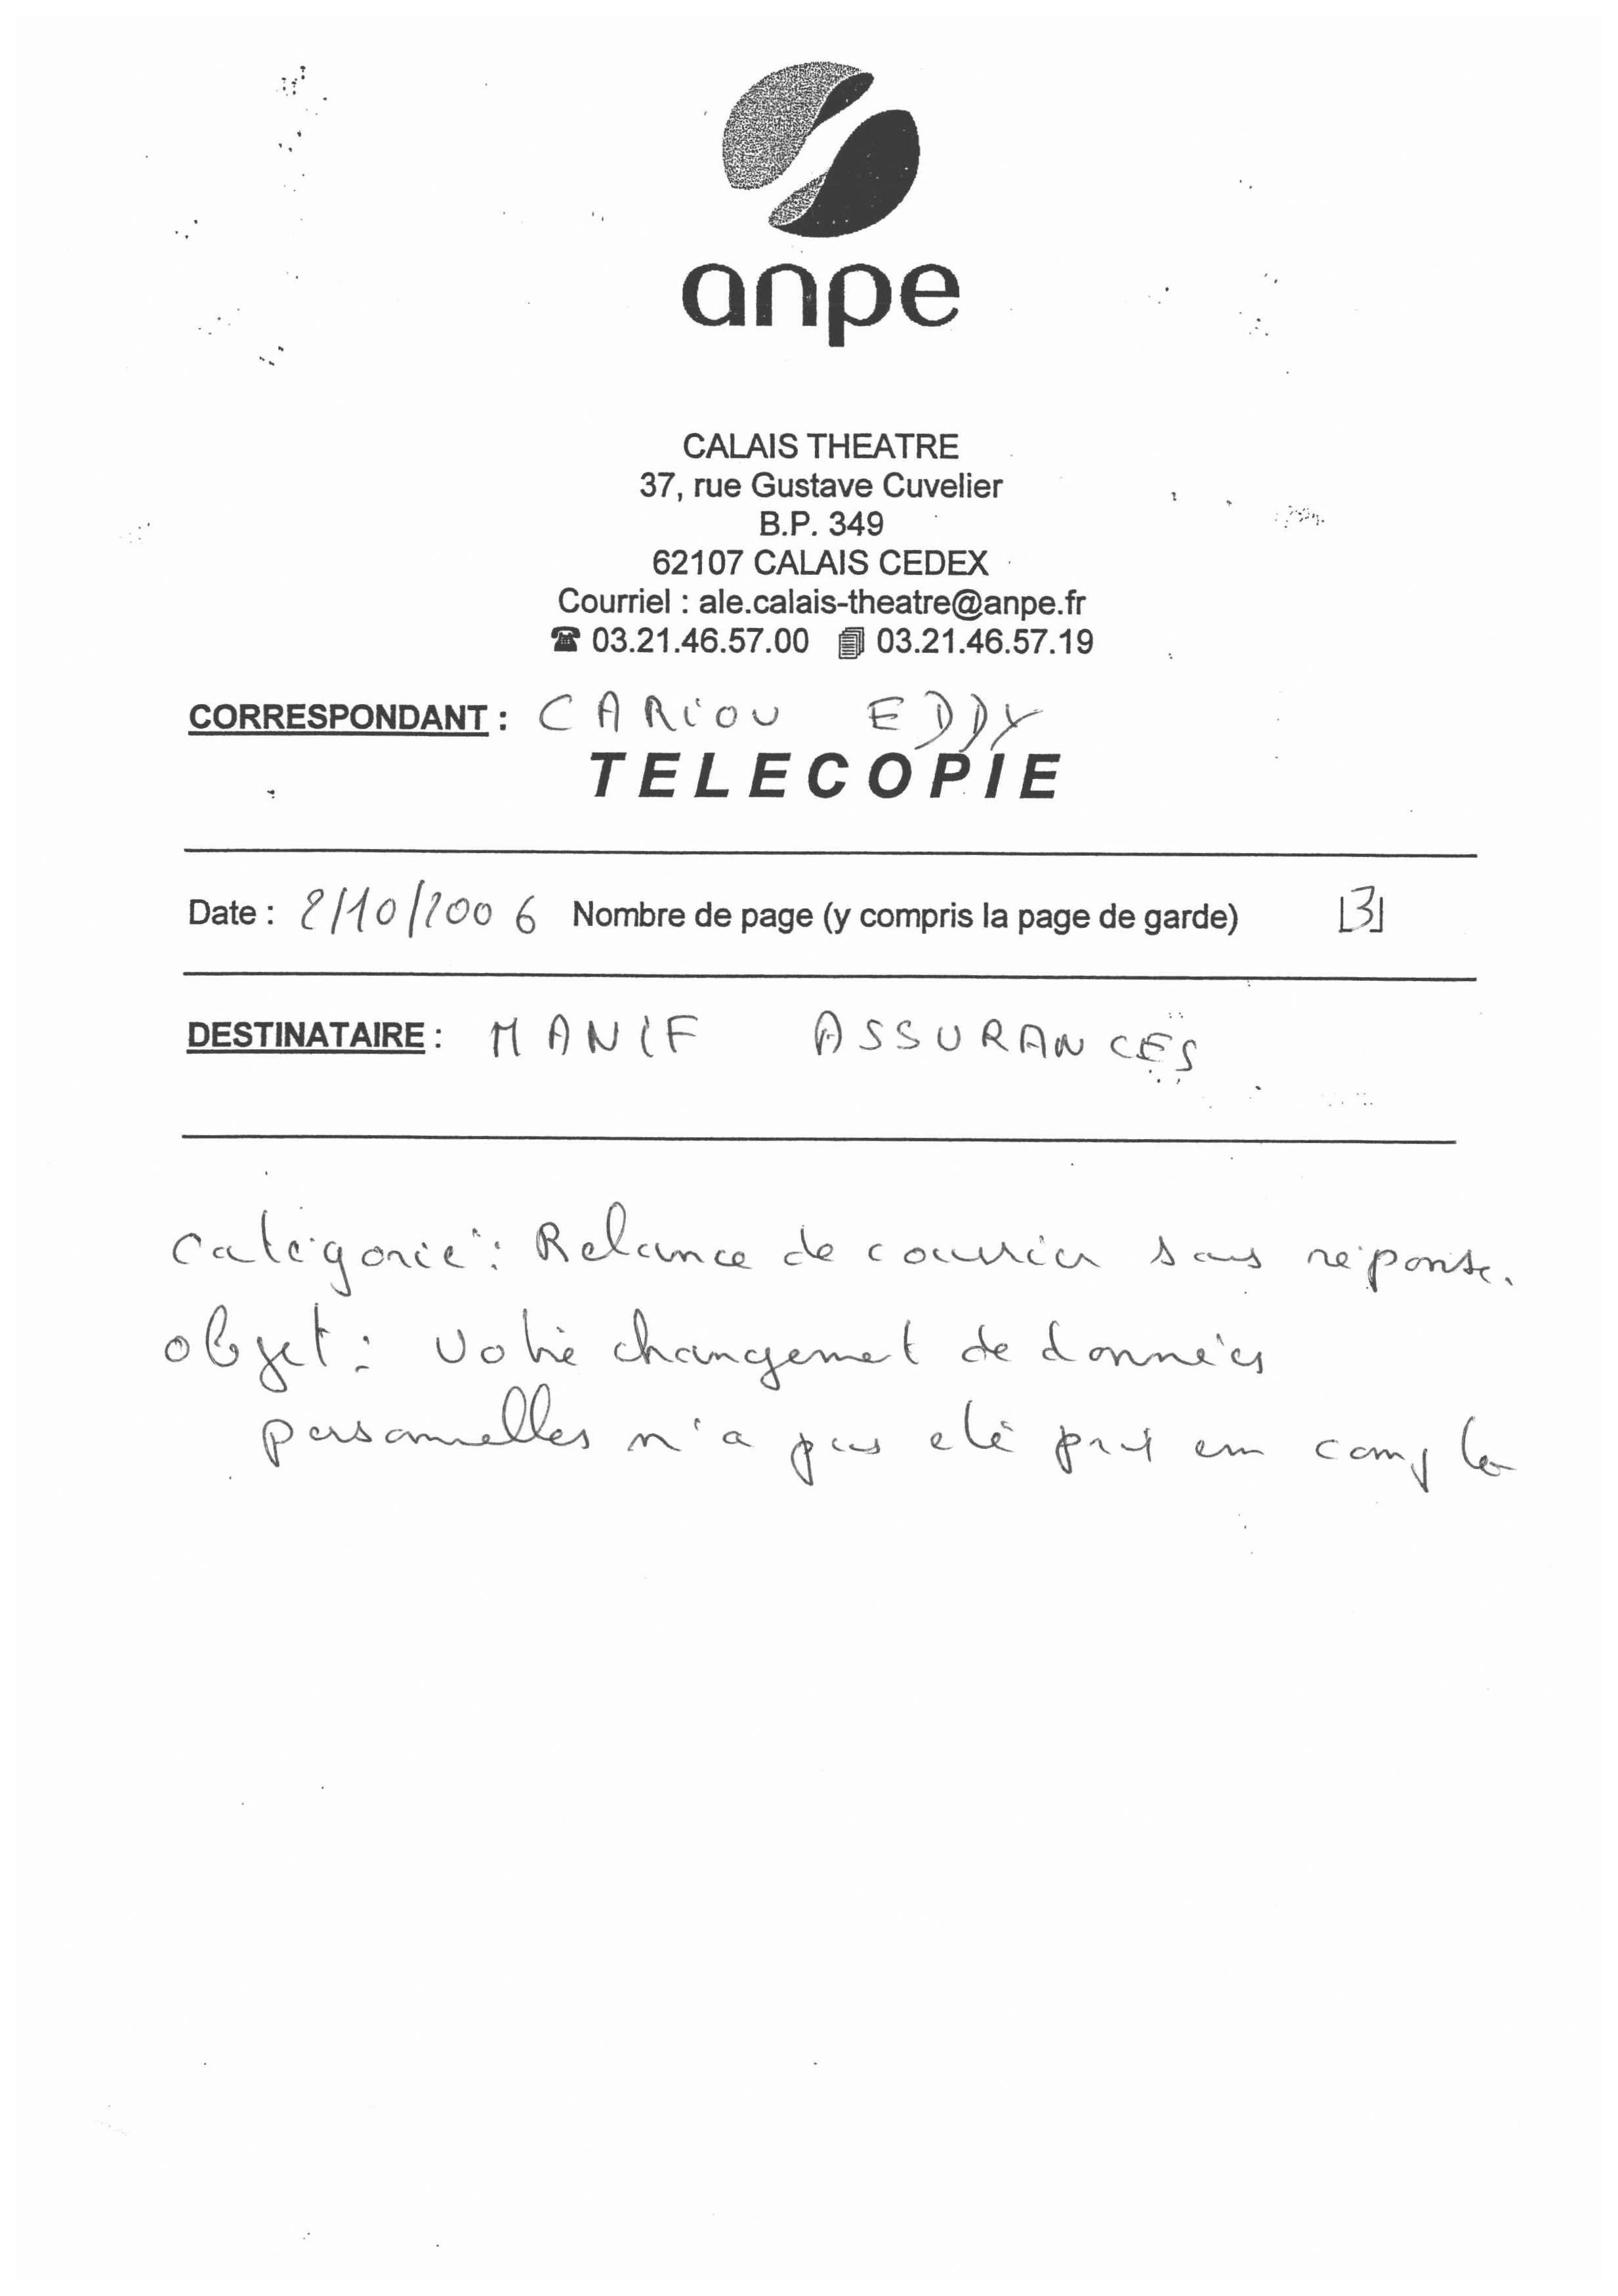 anpe
CALAIS THEATRE
37, rue Gustave Cuvelier
B.P. 349
62107 CALAIS CEDEX
Courriel : ale.calais-theatre@anpe.fr
☎ 03.21.46.57.00 03.21.46.57.19
CORRESPONDANT : CARIOU EDDY
TELECOPIE
Date : 2/10/2006 Nombre de page (y compris la page de garde) 3
DESTINATAIRE : MANIF ASSURANCES
Catégorie : Relance de courrier sans réponse.
objet : Votre changement de données
personnelles n'a pas été pris en compte